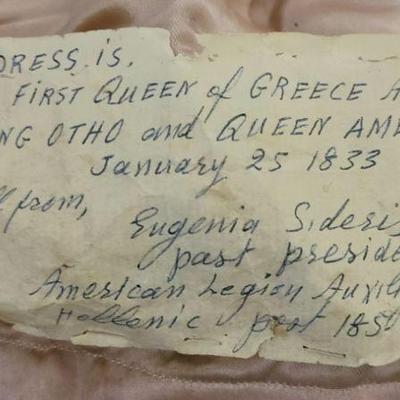 DRESS is.
FIRST QUEEN of GREECE A
NG OTHO and QUEEN AME
January 25 1833
from,
Eugenia Sideris
past preside
American Legion Auxil
Hellenic post 1850